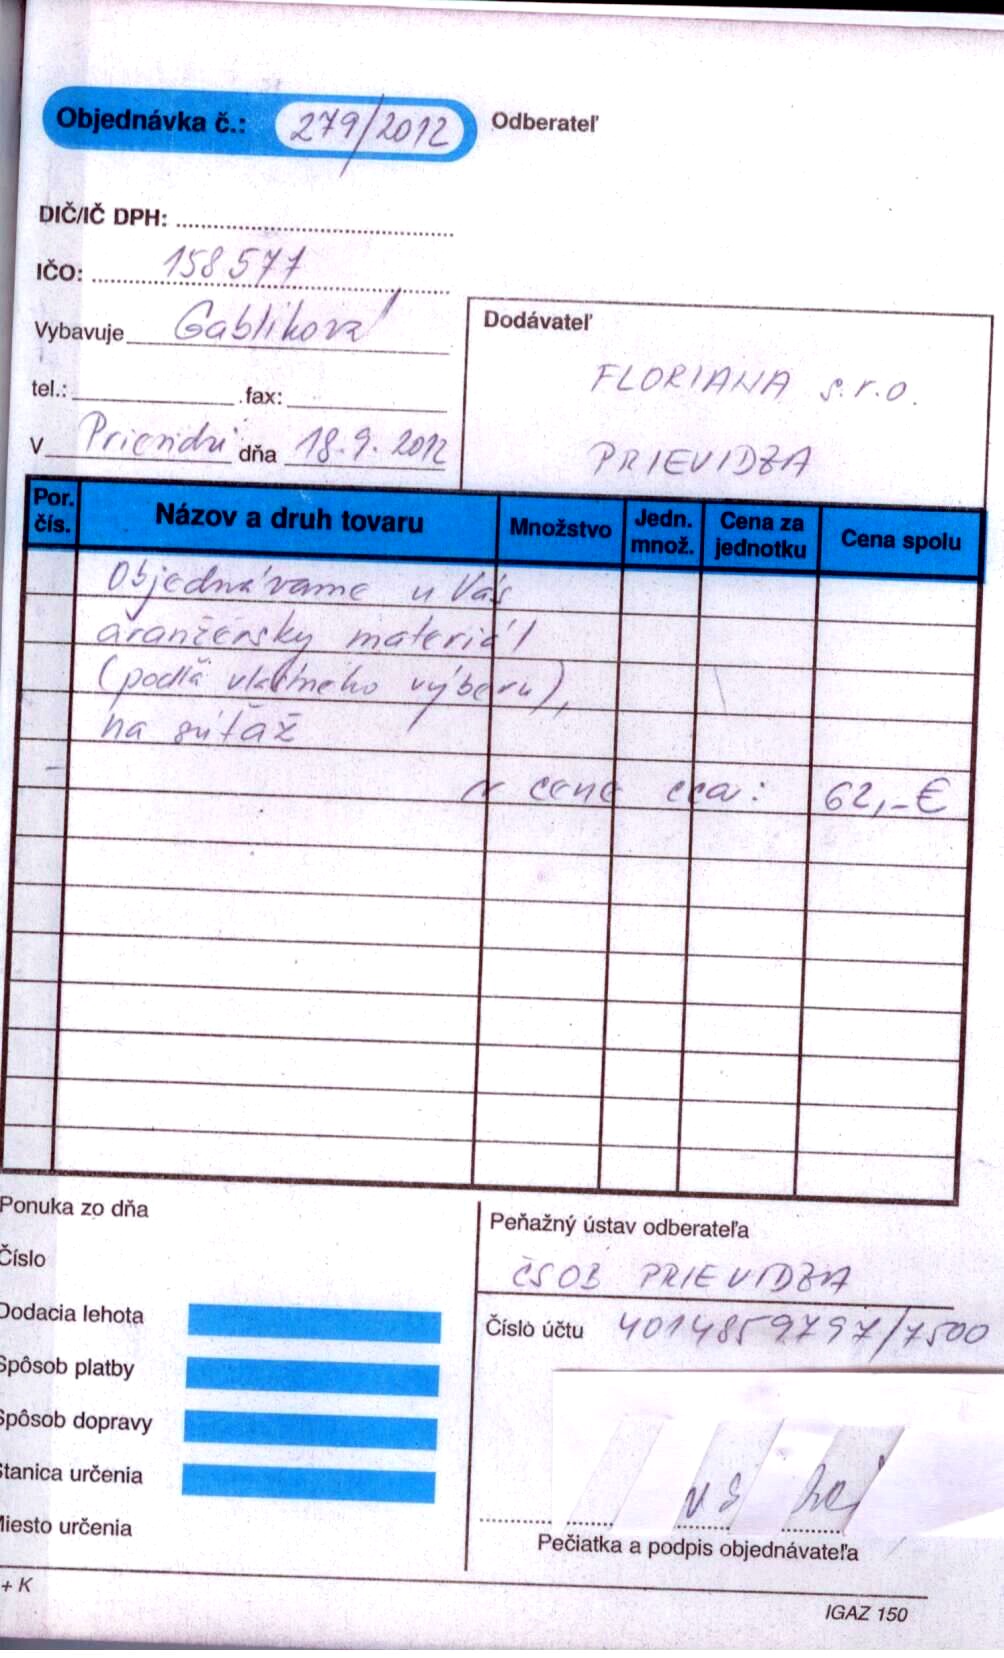 Objednávka č.: 279/2012
Odberateľ
DIČ/IČ DPH:
IČO: 158577
Vybavuje Gabliková
tel.: fax:
V Prievidzi dňa 18.9.2012
Dodávateľ
FLORIANA s.r.o.
PRIEVIDZA
Por. čís. Názov a druh tovaru Množstvo Jedn. množ. Cena za jednotku Cena spolu
Objednávame u Vás
aranžérsky materiál
(podľa vlastného výberu),
na súťaž
v cene cca: 62,-€
Ponuka zo dňa
Číslo
Dodacia lehota
Spôsob platby
Spôsob dopravy
Stanica určenia
Miesto určenia
Peňažný ústav odberateľa
ČSOB PRIEVIDZA
Číslo účtu 4014859797/7500
Pečiatka a podpis objednávateľa
+ K
IGAZ 150